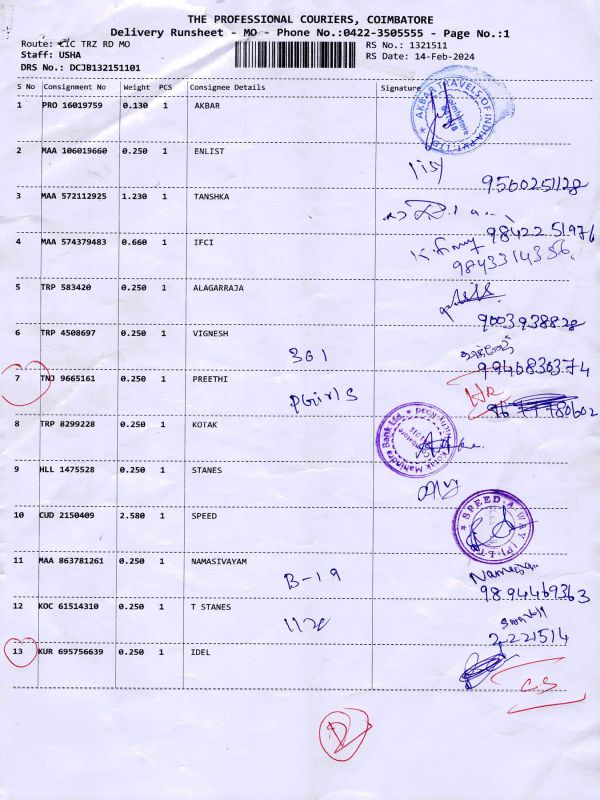 THE PROFESSIONAL COURIERS, COIMBATORE
Delivery Runsheet - MO - Phone No.:0422-3505555 - Page No.:1
Route: CIC TRZ RD MO
RS No.: 1321511
Staff: USHA
RS Date: 14-Feb-2024
DRS No.: DCJB132151101
S No Consignment No Weight PCS Consignee Details Signature
1 PRO 16019759 0.130 1 AKBAR
AKBAR TRAVELS OF INDIA PVT. LTD.
Coimbatore
2 MAA 106019660 0.250 1 ENLIST
9560251128
3 MAA 572112925 1.230 1 TANSHKA
9842251976
4 MAA 574379483 0.660 1 IFCI
9843314356
5 TRP 583420 0.250 1 ALAGARRAJA
9003938828
6 TRP 4508697 0.250 1 VIGNESH
301
9946830374
7 TNJ 9665161 0.250 1 PREETHI
PGirls
8 TRP 8299228 0.250 1 KOTAK
Kotak Mahindra Bank Ltd.
9 HLL 1475528 0.250 1 STANES
10 CUD 2150409 2.580 1 SPEED
SPEED-A-WAY (P) LTD
11 MAA 863781261 0.250 1 NAMASIVAYAM
B-19
9894469363
12 KOC 61514310 0.250 1 T STANES
2221514
13 KUR 695756639 0.250 1 IDEL
CS
D